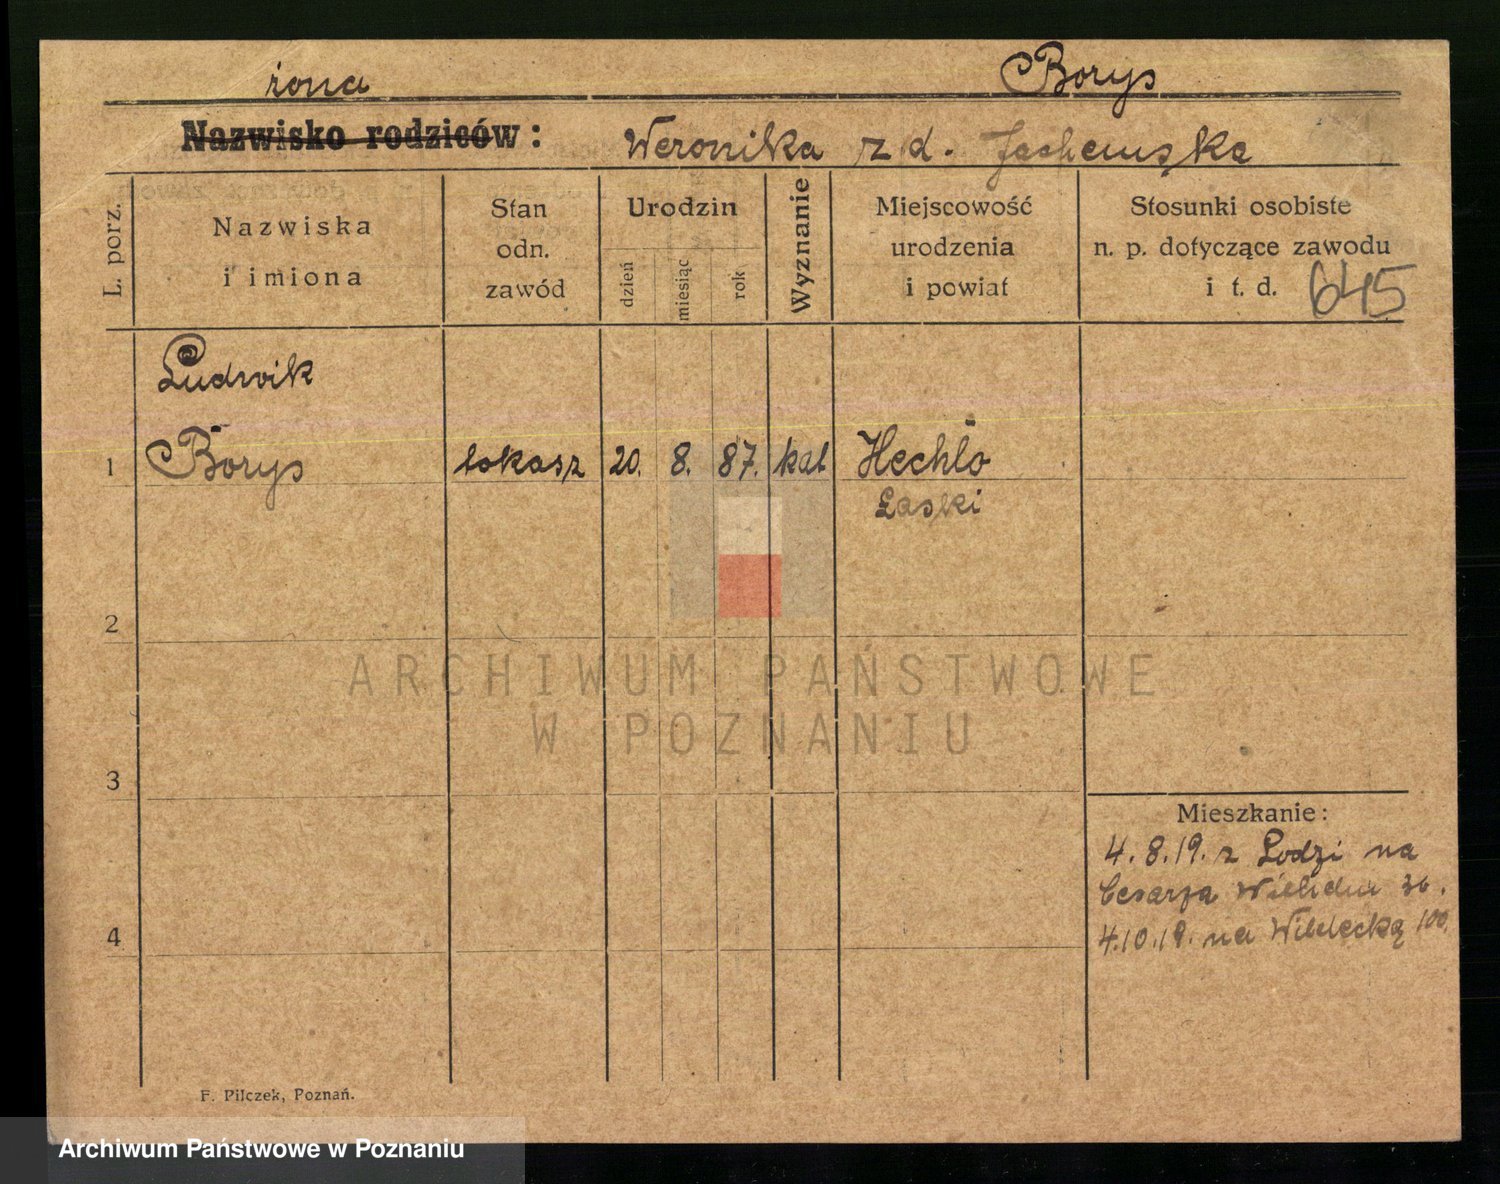 żona
Borys
Nazwisko rodziców:
Weronika z d.
L. porz.
Nazwiska
i imiona
Stan
odn.
zawód
Urodzin
dzień
miesiąc
rok
Wyznanie
Miejscowość
urodzenia
i powiat
Stosunki osobiste
n. p. dotyczące zawodu
i t. d.
645
Ludwik
1 Borys
tokasz
20. 8. 87. kat Hechło
Łaski
2
3
4
Mieszkanie:
4.8.19. z Łodzi na
Cesarza Wilhelma 36.
4.10.19. na Wildecką 100.
F. Pilczek, Poznań.
ARCHIWUM PAŃSTWOWE
W POZNANIU
Archiwum Państwowe w Poznaniu